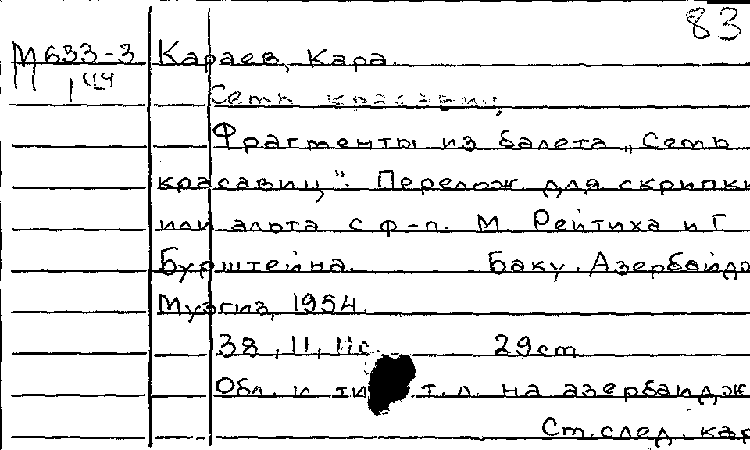 83
М633-3 Караев, Кара
1 Семь красавиц
Фрагменты из балета „Семь
красавиц". Перелож для скрипки
или альта с ф-п. М Рейтиха и Г
Бурштейна. Баку. Азербайдж
Музгиз, 1954.
38, 11, 11с. 29cm
Обл. и ти т.л. на азербайдж
Ст. след. кар